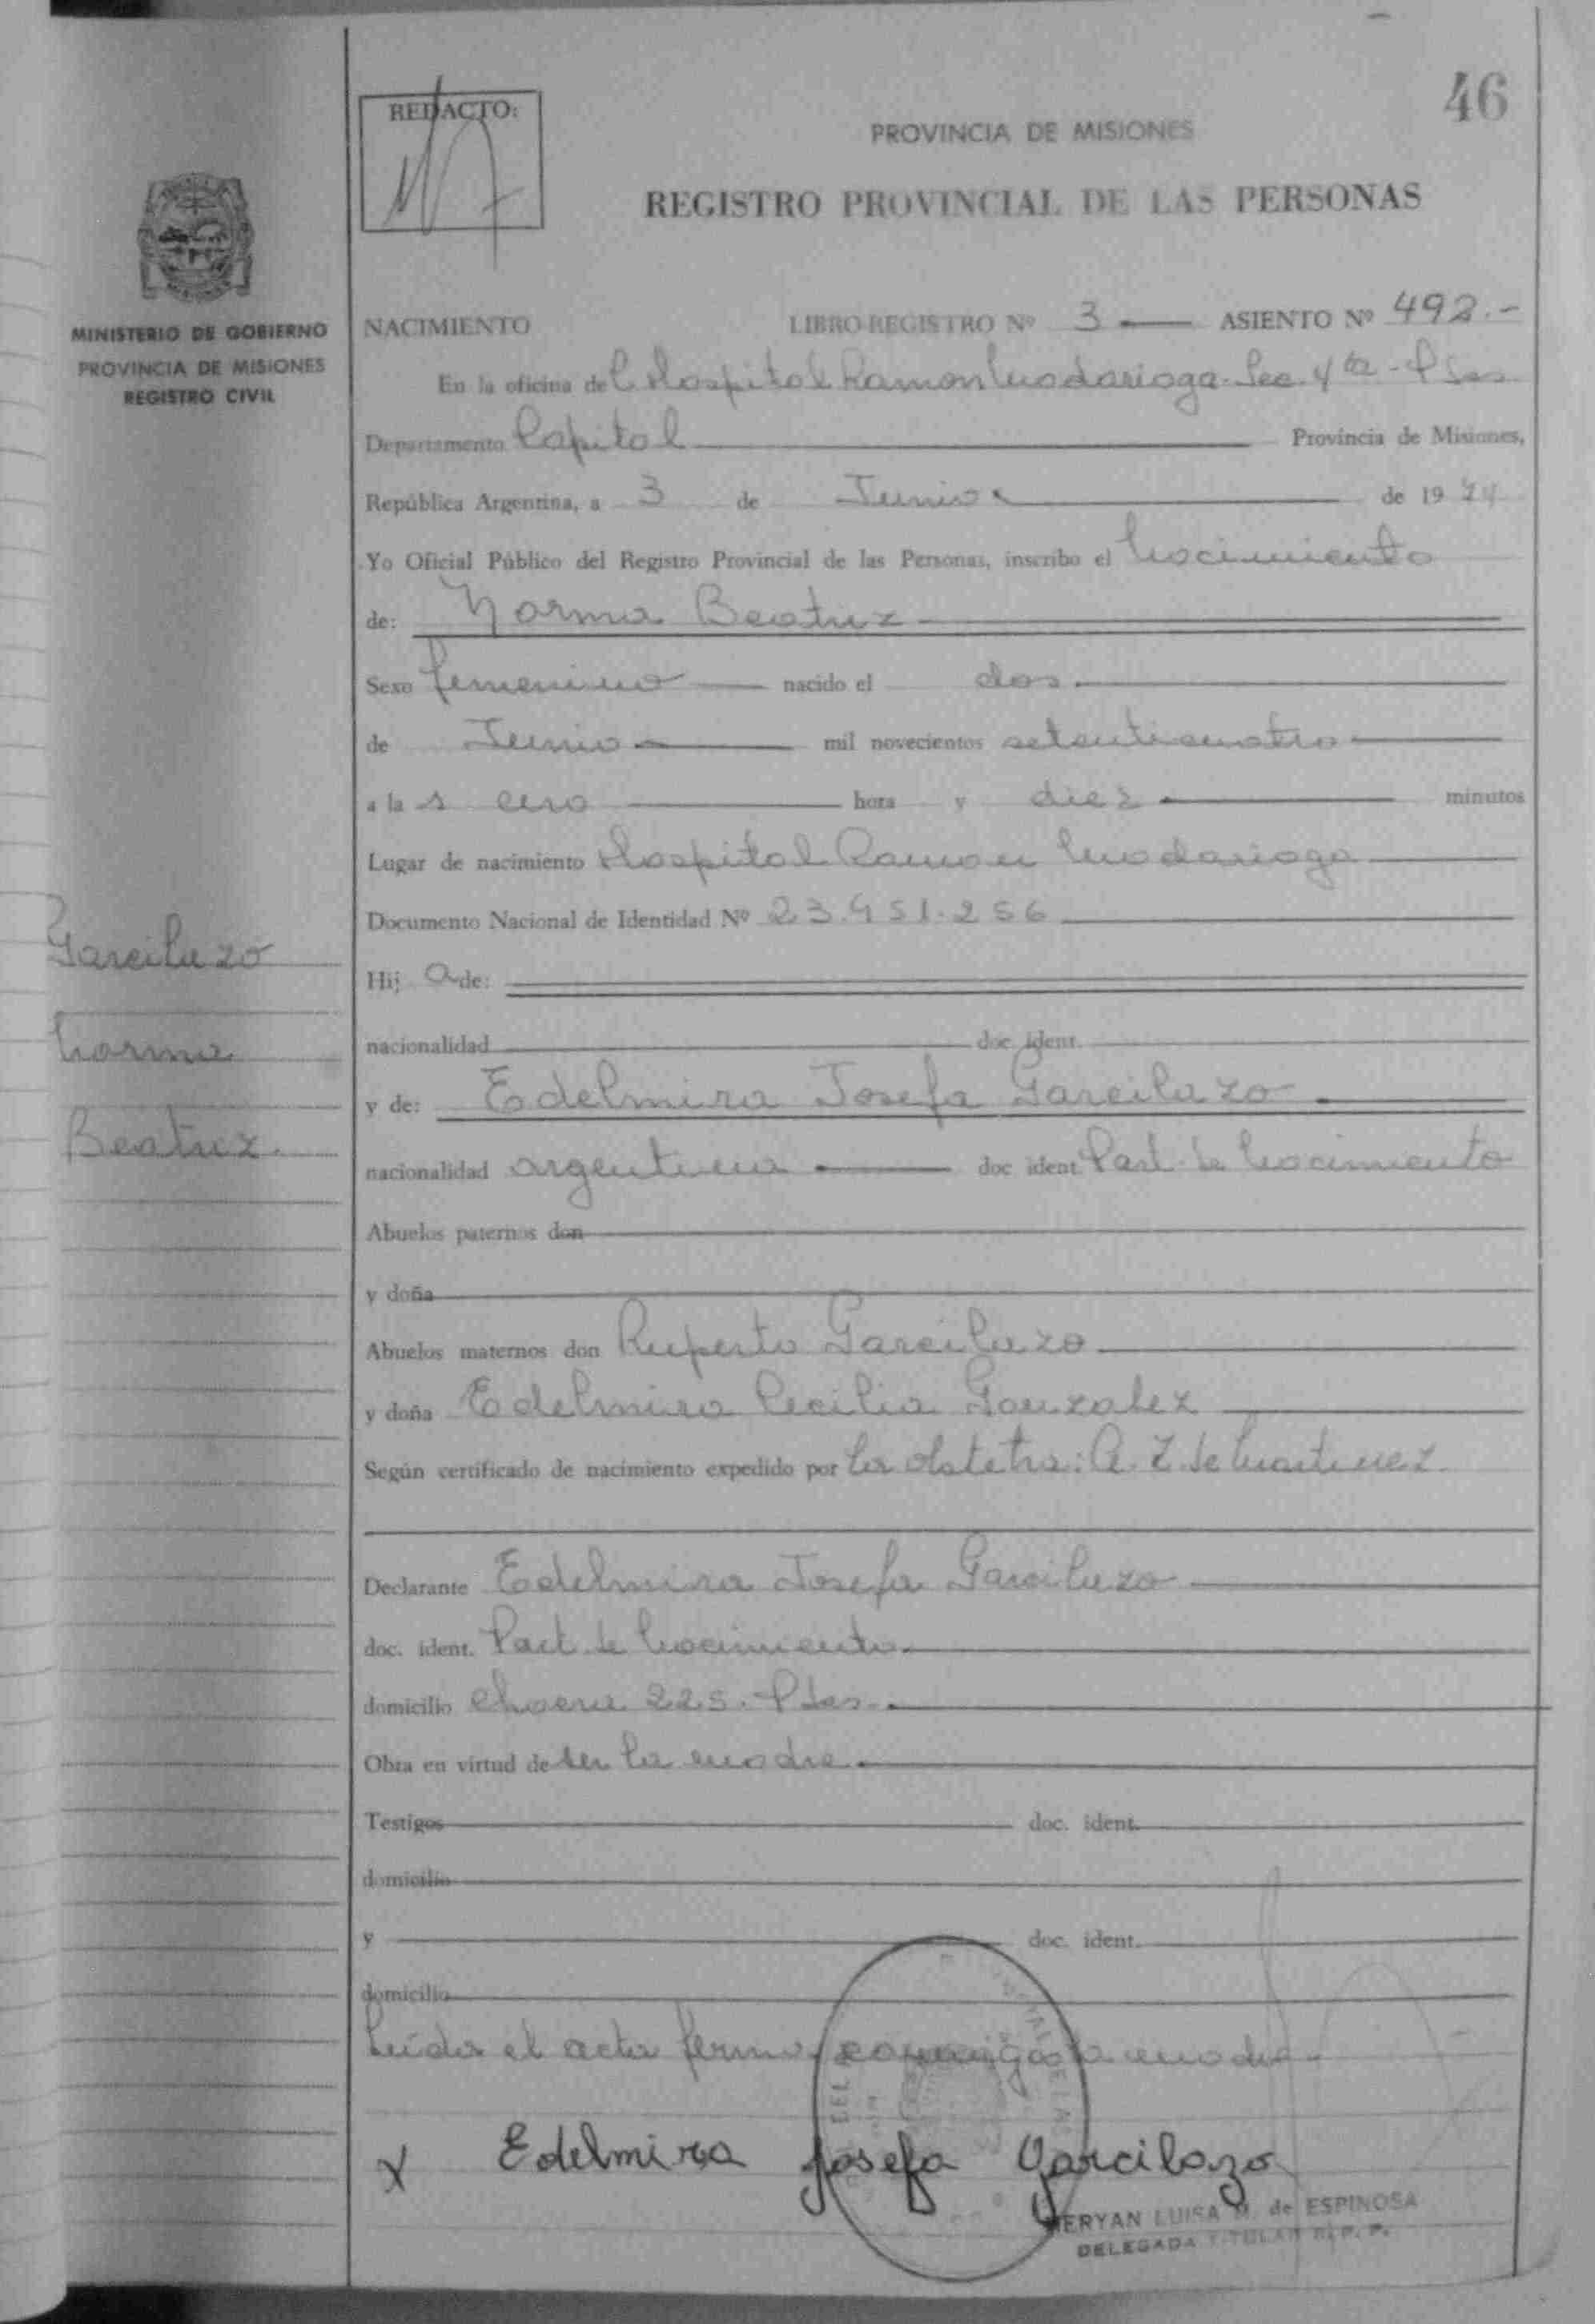 46
REDACTO:
PROVINCIA DE MISIONES
REGISTRO PROVINCIAL DE LAS PERSONAS
MINISTERIO DE GOBIERNO
PROVINCIA DE MISIONES
REGISTRO CIVIL
NACIMIENTO LIBRO REGISTRO Nº 3 ASIENTO Nº 492.-
En la oficina del Hospital Ramon Madariaga - Sec. 4ta - Psas
Departamento Capital Provincia de Misiones,
República Argentina, a 3 de Junio de 1974
Yo Oficial Público del Registro Provincial de las Personas, inscribo el Nacimiento
de: Norma Beatriz
Sexo femenino nacido el dos
de Junio mil novecientos setenticuatro
a las cero hora y diez minutos
Lugar de nacimiento Hospital Ramon Madariaga
Documento Nacional de Identidad Nº 23.951.256
Garcilazo
Norma
Beatriz.
Hija de:
nacionalidad doc. ident.
y de: Edelmira Josefa Garcilazo
nacionalidad argentina doc ident. Part. de Nacimiento
Abuelos paternos don
y doña
Abuelos maternos don Ruperto Garcilazo
y doña Edelmira Cecilia Gonzalez
Según certificado de nacimiento expedido por la obstetra: A. Z. de Martinez
Declarante Edelmira Josefa Garcilazo
doc. ident. Part. de Nacimiento
domicilio 225. Psas.
Obra en virtud de ser la madre.
Testigos doc. ident.
domicilio
y doc. ident.
domicilio
Leída el acta firma conmigo la madre.
X Edelmira Josefa Garcilazo
MERYAN LUISA M. de ESPINOSA
DELEGADA TITULAR R. P. P.